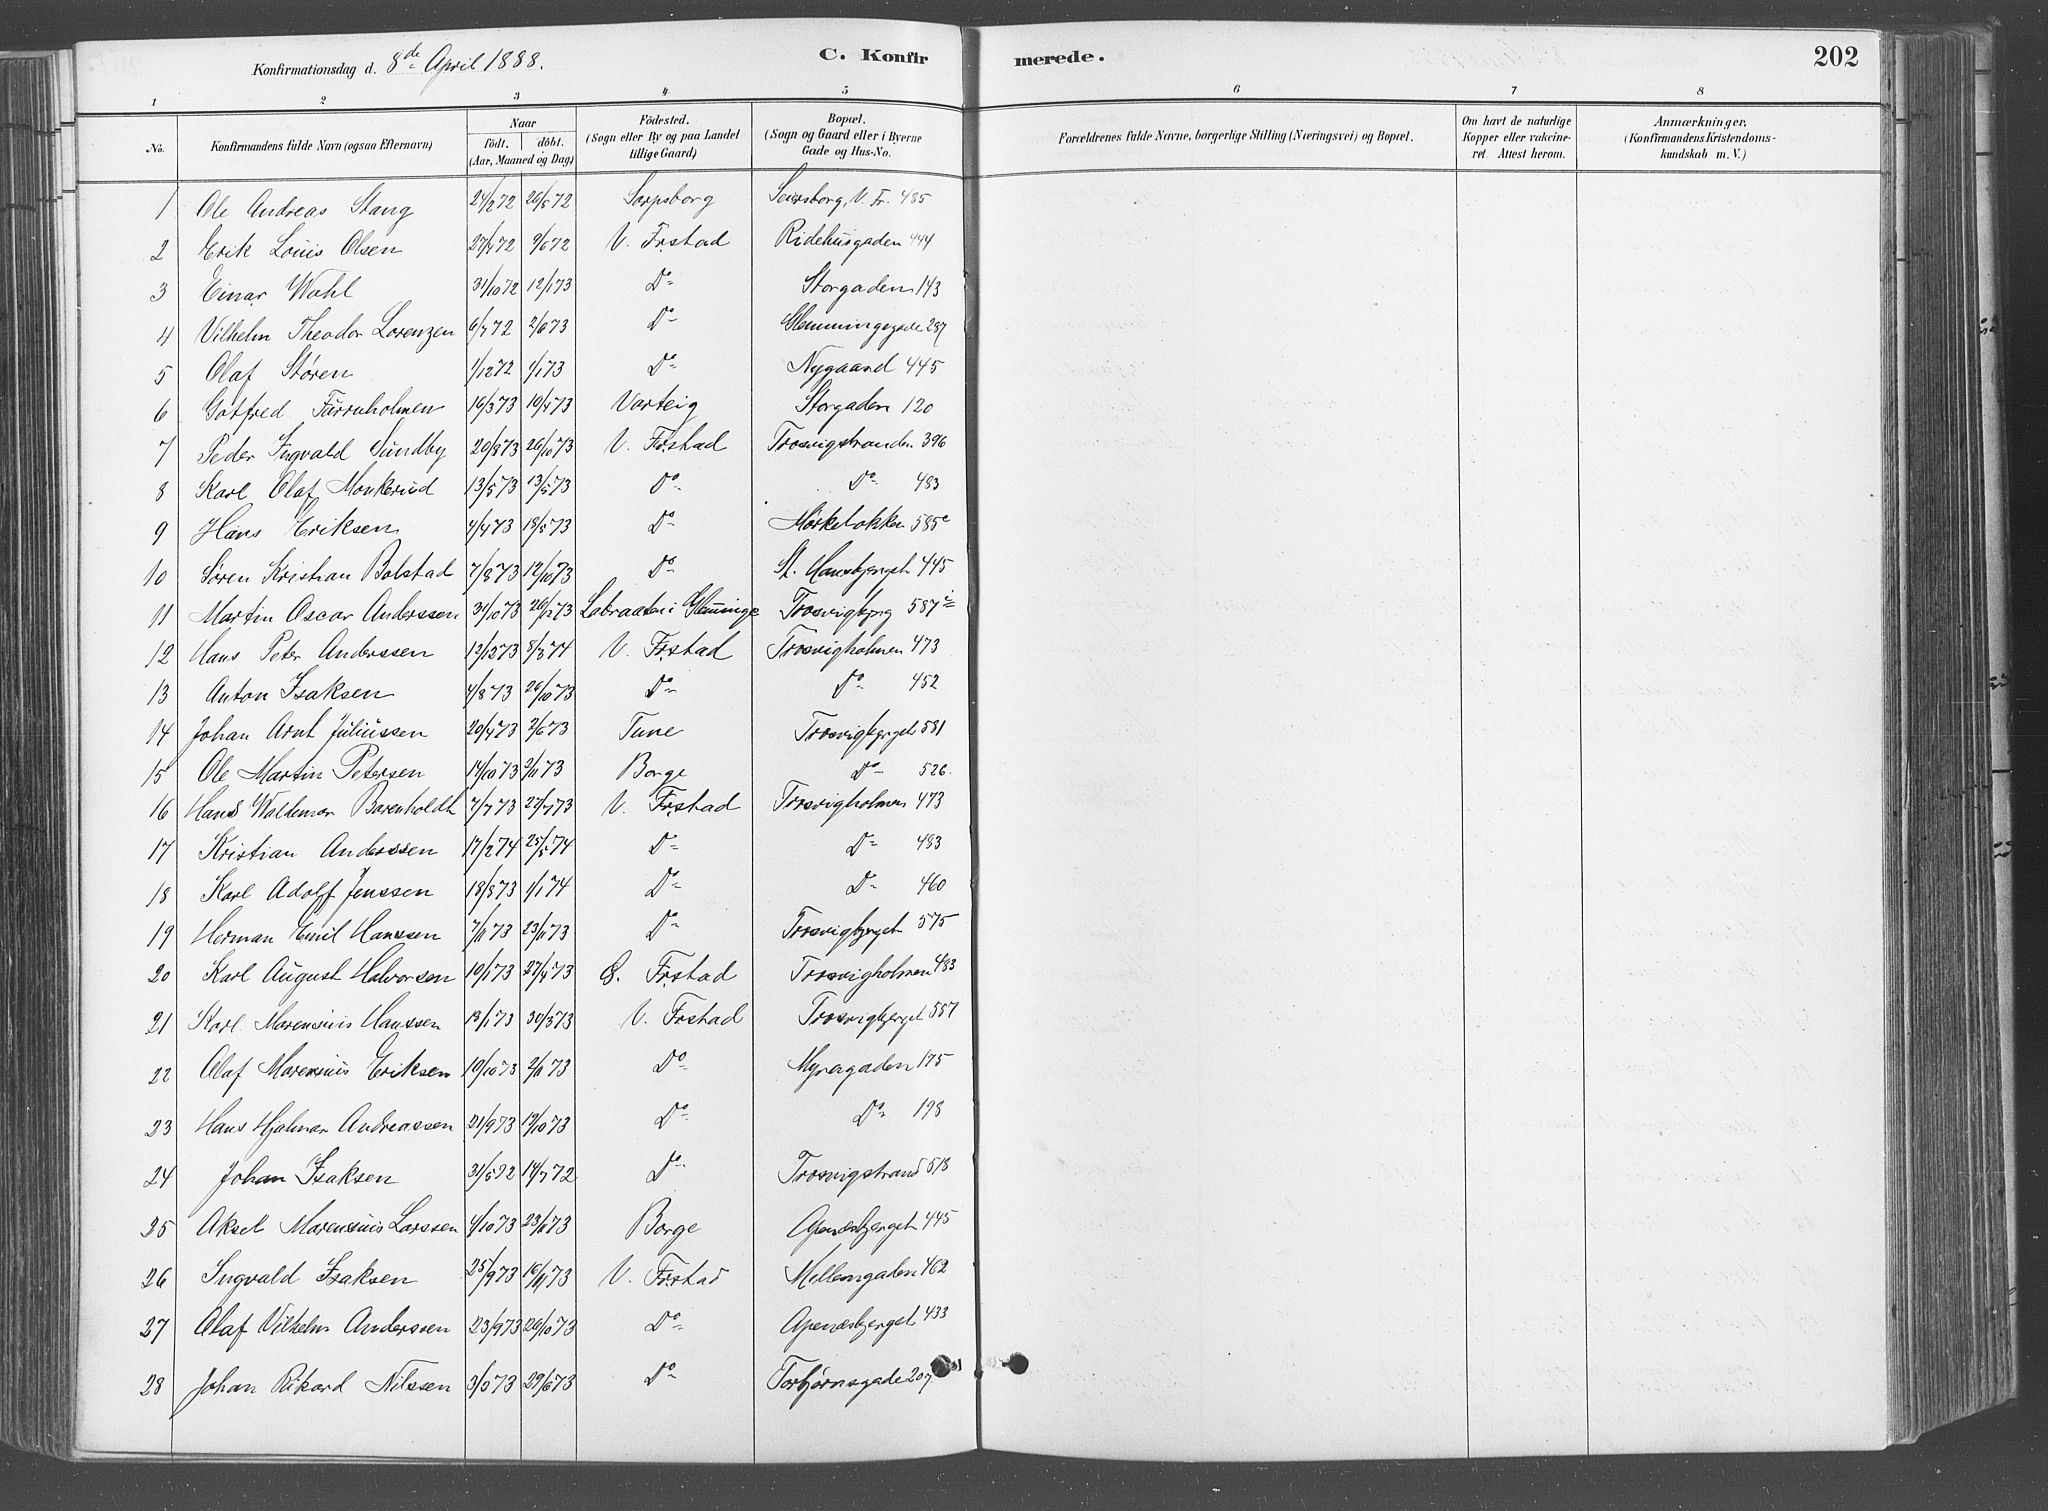 Konfirmationsdag d. 8de April 1888.
C. Konfirmerede.
202
1 2 3 4 5 6 7 8
No.
Konfirmandens fulde Navn (ogsaa Efternavn)
Naar
født. døbt.
(Aar, Maaned og Dag)
Fødested.
(Sogn eller By og paa Landet tillige Gaard)
Bopæl.
(Sogn og Gaard eller i Byerne Gade og Hus-No.
Forældrenes fulde Navne, borgerlige Stilling (Næringsvei) og Bopæl.
Om havt de naturlige Kopper eller vakcineret. Attest herom.
Anmærkninger,
(Konfirmandens Kristendomskundskab m. V.)
1 Ole Andreas Stang 24/2 72 26/5 72 Sarpsborg Seiersborg, V. Fr. 485
2 Erik Louis Olsen 27/4 72 9/6 72 V. Frstad Ridehusgaden 444
3 Einar Wahl 31/10 72 12/1 73 Do Storgaden 143
4 Vilhelm Theodor Lorenzen 6/7 72 2/6 73 Do Glemmingegade 287
5 Olaf Støren 1/12 72 1/1 73 Do Nygaard 445
6 Gotfred Furuholmen 16/3 73 10/4 73 Varteig Storgaden 120
7 Peder Ingvald Sundby 20/8 73 26/10 73 V. Frstad Trosvigstranden 396
8 Karl Olaf Monkerud 13/5 73 13/5 73 Do Do 483
9 Hans Eriksen 4/4 73 18/5 73 Do Mørkeløkken 585c
10 Søren Kristian Bolstad 7/8 73 12/10 73 Do St. Hansbjerget 445
11 Martin Oscar Anderssen 31/10 73 26/12 73 Labraaten i Glemminge Trosvigbjrg 587
12 Hans Peter Anderssen 12/12 73 8/3 74 V. Frstad Trosvigholmen 473
13 Anton Isaksen 4/8 73 26/10 73 Do Do 452
14 Johan Arnt Juliussen 20/4 73 2/6 73 Tune Trosvigberget 581
15 Ole Martin Petersen 14/10 73 2/11 73 Borge Do 526.
16 Hans Waldemar Barenholdt 7/7 73 27/7 73 V. Frstad Trosvigholmen 473
17 Kristian Anderssen 17/2 74 25/5 74 Do Do 483
18 Karl Adolf Jenssen 18/8 73 1/1 74 Do Do 460
19 Herman Emil Hanssen 7/11 73 23/11 73 Do Trosvigbjerget 575
20 Karl August Halvorsen 10/1 73 27/4 73 O. Frstad Trosvigholmen 483
21 Karl Marensius Hanssen 13/1 73 30/3 73 V. Frstad Trosvigbjerget 587
22 Olaf Marensius Eriksen 10/10 73 2/11 73 Do Myragaden 175
23 Hans Hjalmar Andreassen 21/9 73 19/10 73 Do Do 198
24 Johan Isaksen 31/5 72 14/7 72 Do Trosvigstrand 518
25 Aksel Marensius Larssen 4/10 73 23/11 73 Borge Apenæsbjerget 445
26 Ingvald Isaksen 25/9 73 16/11 73 V. Frstad Mellemgaden 462
27 Olaf Vilhelm Anderssen 23/9 73 26/10 73 Do Apenæsbjerget 433
28 Johan Rikard Nilssen 3/5 73 29/6 73 Do Torbjørnsgade 207